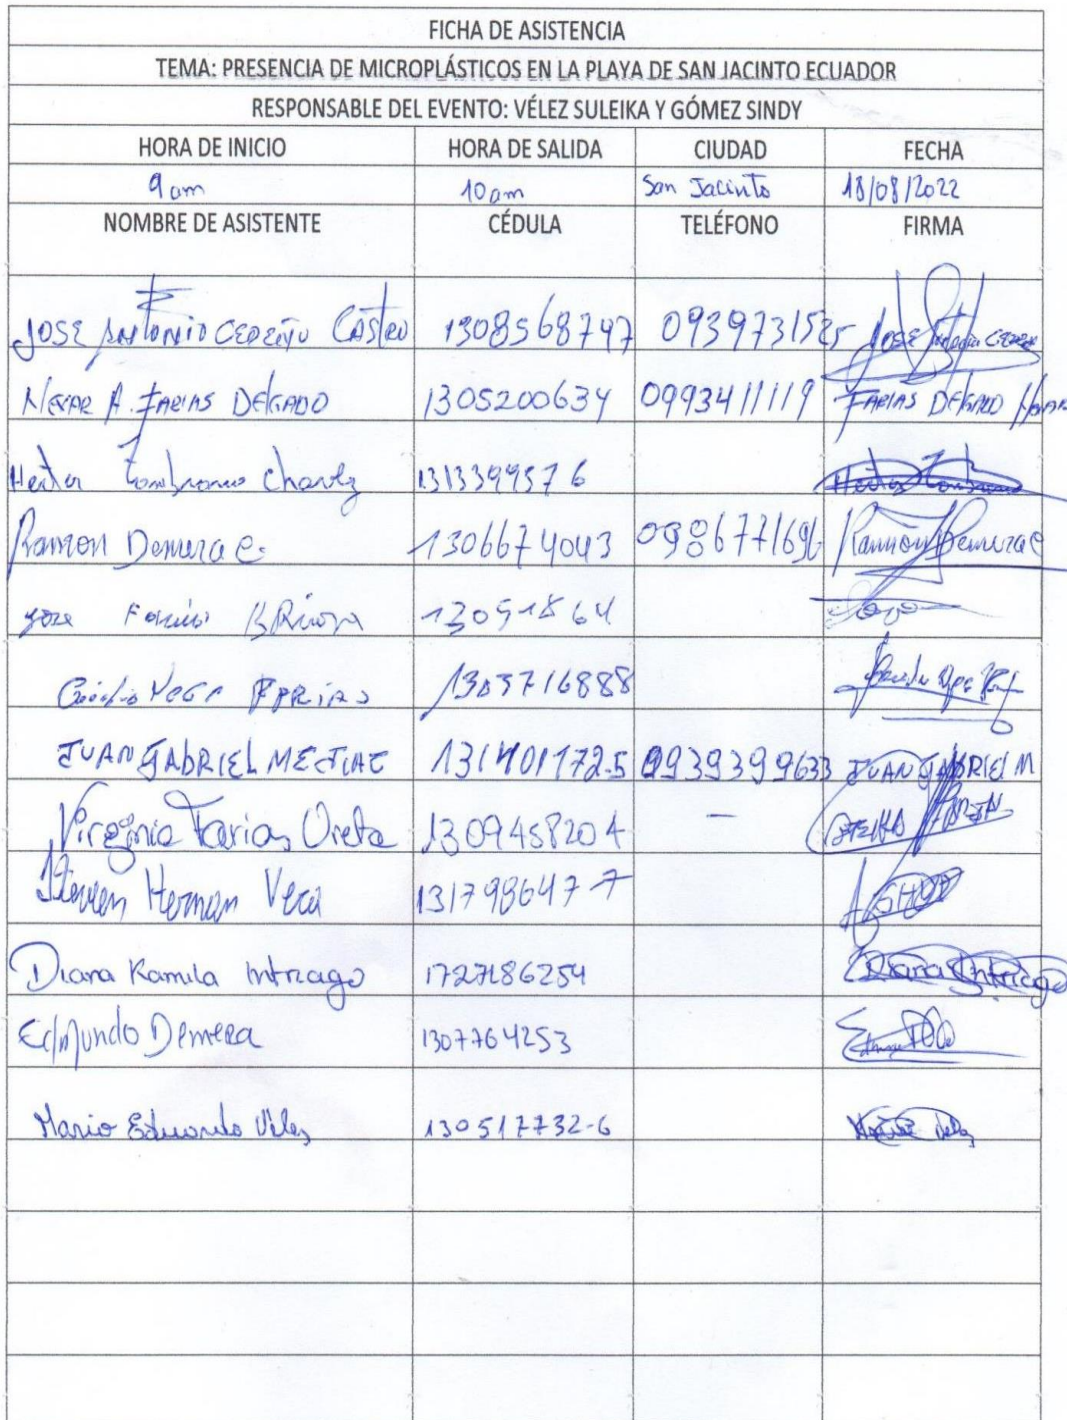 FICHA DE ASISTENCIA
TEMA: PRESENCIA DE MICROPLÁSTICOS EN LA PLAYA DE SAN JACINTO ECUADOR
RESPONSABLE DEL EVENTO: VÉLEZ SULEIKA Y GÓMEZ SINDY
HORA DE INICIO HORA DE SALIDA CIUDAD FECHA
9am 10am San Jacinto 18/08/2022
NOMBRE DE ASISTENTE CÉDULA TELÉFONO FIRMA
JOSE Antonio CEDEÑO CASTRO 1308568747 0939731525 JOSE
A. FARIAS DELGADO 1305200634 0993411119 FARIAS DELGADO
Chavez 1313399576
Ramon Demera C. 1306674043 0986771696 Ramon Demera C
1303716888
JUAN GABRIEL 1314011725 0939399633 JUAN GABRIEL M
Virginia Farias Ureta 1309458204 –
Steven Hernan Vera 1317986477
Diana Kamila Intriago 1727186254 Diana Intriago
Edmundo Demera 1307764253
Mario Eduardo Velez 130517732-6